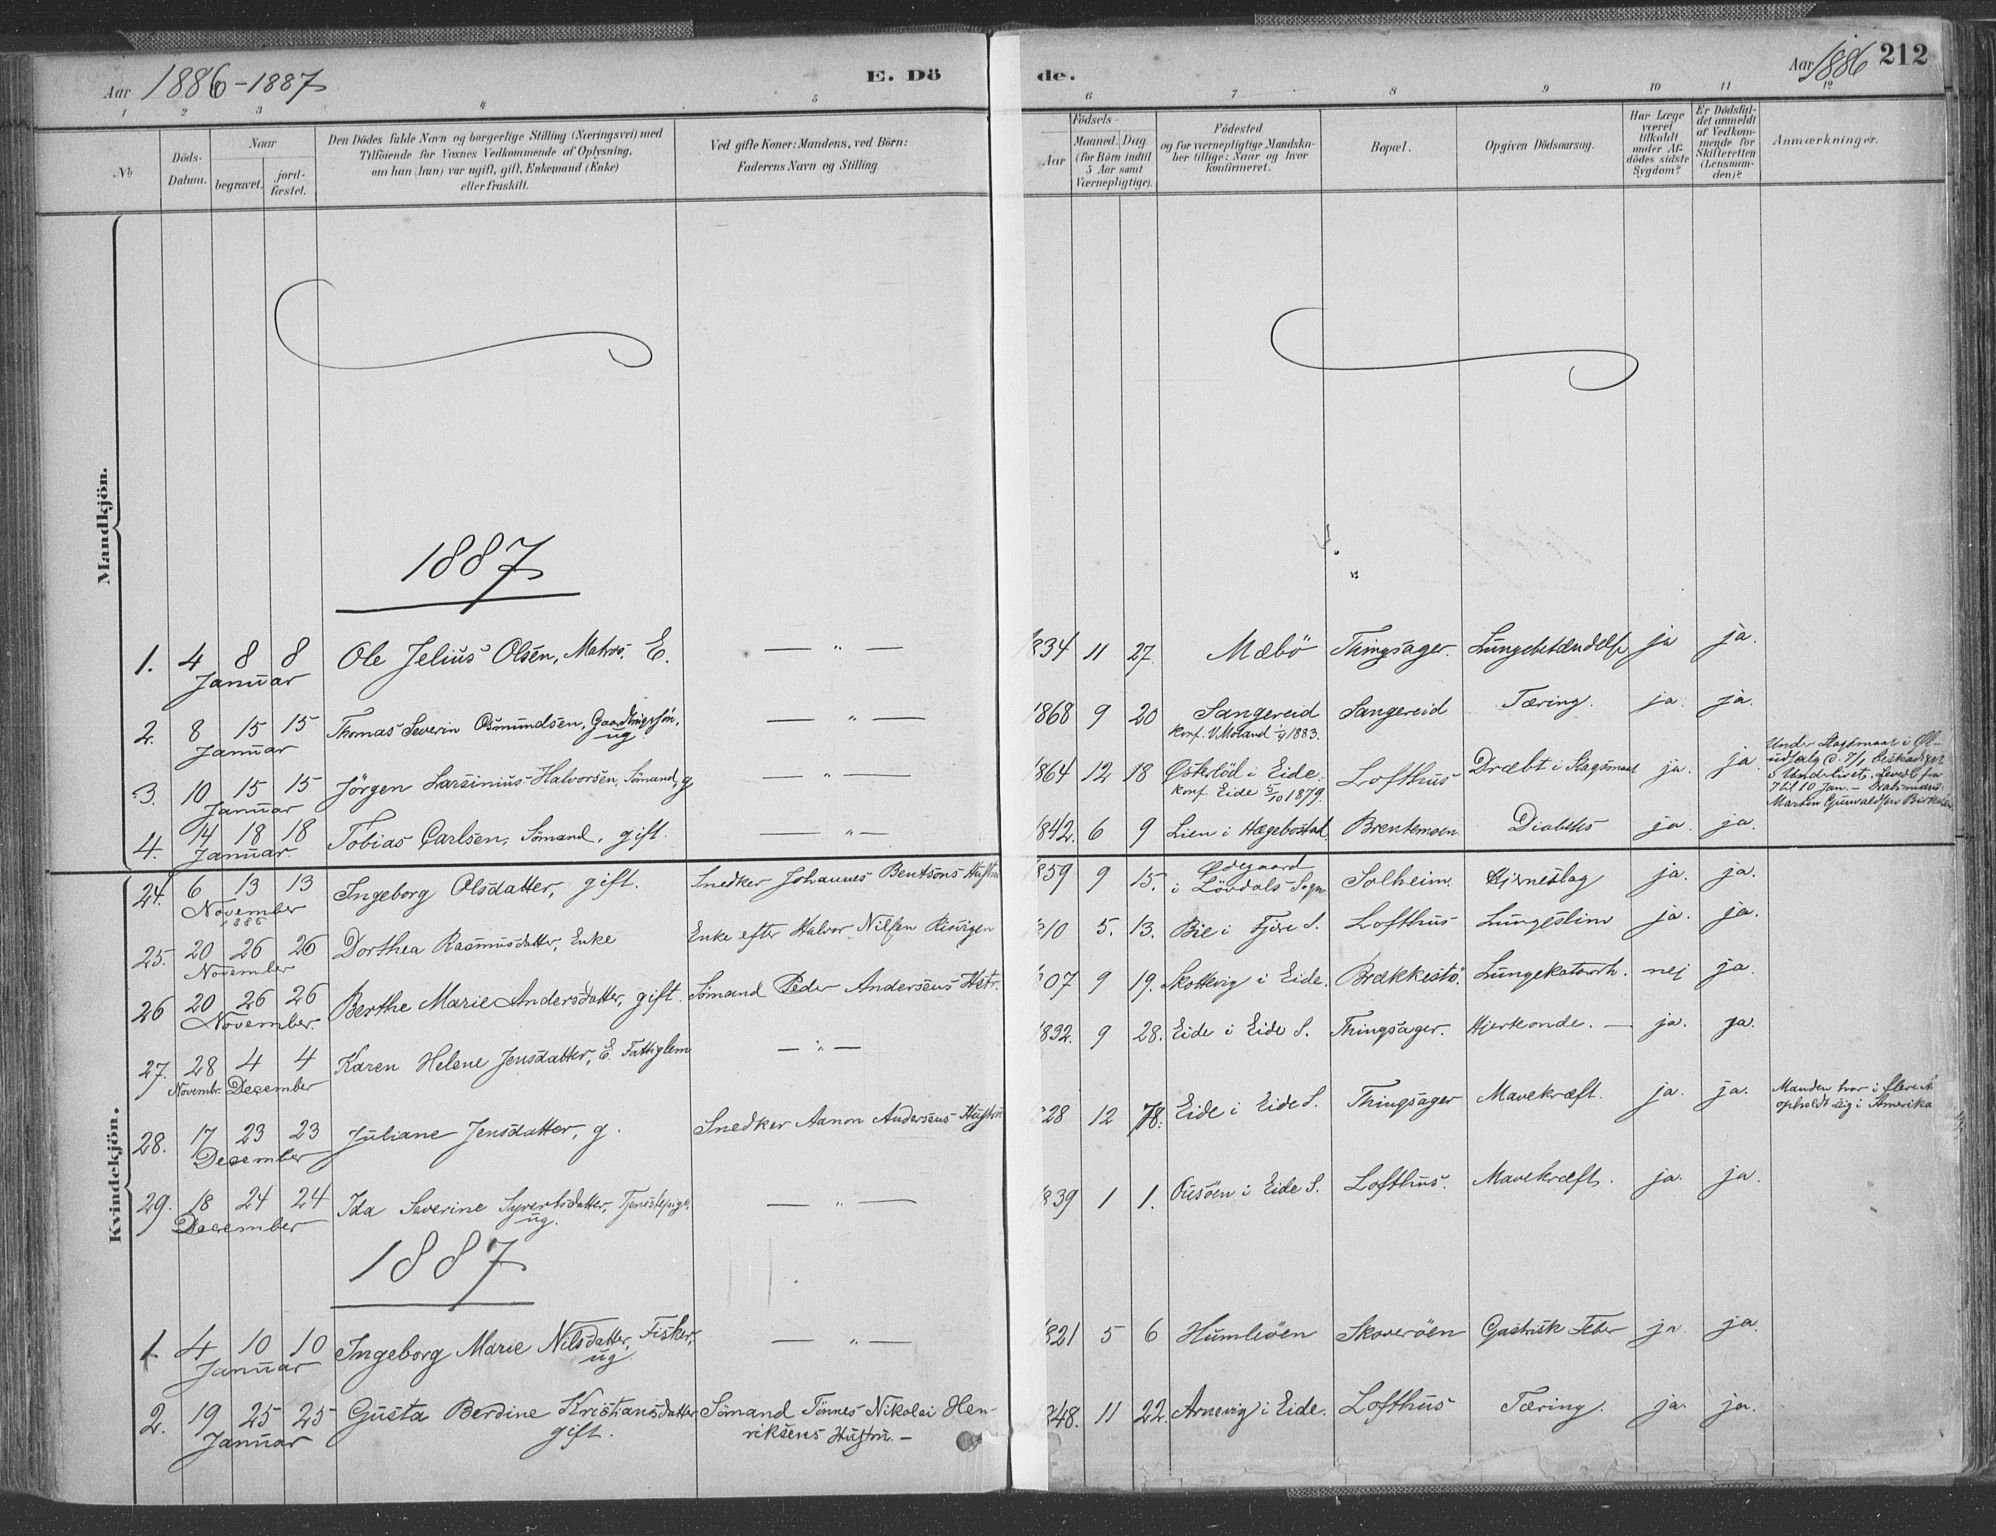 Aar 1886-1887 E. Dö de. Aar 1886 212
1 2 3 4 5 6 7 8 9 10 11 12
No
Döds-Datum.
Naar
begravet.
jord-fæstet.
Den Dödes fulde Navn og borgerlige Stilling (Næringsvei) med
Tilföiende for Voxnes Vedkommende af Oplysning,
om han (hun) var ugift, gift, Enkemand (Enke)
eller fraskilt.
Ved gifte Koner: Mandens, ved Börn:
Faderens Navn og Stilling.
Födsels-
Aar
Maaned. Dag.
(for Börn indtil
5 Aar samt
Værnepligtige).
Födested
og for værnepligtige Mandska-
ber tillige: Naar og hvor
konfirmeret.
Bopæl.
Opgiven Dödsaarsag.
Har Læge
været
tilkaldt
under Af-
dödes sidste
Sygdom?
Er Dödsfal-
det anmeldt
af Vedkom-
mende for
Skifteretten
(Lensman-
den)?
Anmærkninger.
Mandkjön.
1887
1. 4 8 8 Januar Ole Jelius Olsen, Matros. E. — " — 1834 11 27 Mæbö Thingsager. Lungebetændelse ja ja.
2. 8 15 15 Januar Thomas Severin Osmundsen, Gaardbrugersön, ug. — " — 1868 9 20 Sangereid Konf. V. Moland 1883. Sangereid Tæring. ja. ja.
3. 10 15 15 Januar Jörgen Larsinius Halvorsen, Sömand, g — " — 1864 12 18 Österöd i Eide. Konf. Eide 5/10 1879. Lofthus Dræbt i Slagsmaal ja. ja
Under Slagsmaal i Öl-
udsalg d. 7/1 beskadiget
i Underlivet. Levede fra
7 til 10 Jan. — Drabsmand:
Martin Gunvaldsen
4. 14 18 18 Januar. Tobias Carlsen, Sömand, gift. — " — 1842. 6 9 Lien i Hægebostad Brentemoen Diabetes ja ja.
Kvindekjön.
24. 6 13 13 November 1886 Ingeborg Olsdatter, gift. Snedker Johannes Bentsons Hustru 1859 9 15. Ödegaard i Lövdals Sogn Solheim. Hjerneslag ja. ja.
25. 20 26 26 November Dorthea Rasmusdatter, Enke Enke efter Halvor Nilsen Risvigen 10 5. 13. Bie i Fjære S. Lofthus Lungeslim ja. ja.
26 20 26 26 November. Berthe Marie Andersdatter, gift. Sömand Peder Andersens Hstr. 07 9 19. Skottevig i Eide. Brækkestö. Lungekatarrh. nej ja.
27. 28 4 4 Novembr. December Karen Helene Jensdatter, E. Fattiglem — " — 1832. 9 28. Eide i Eide S. Thingsager. Hjerteonde. — ja. ja.
28. 17 23 23 December Juliane Jensdatter, g. Snedker Aanon Andersens Hustru 28 12 18. Eide i Eide S. Thingsager Mavekræft. ja. ja.
Manden har i flere A.
opholdt sig i Amerika
29. 18 24 24 December Ida Severine Syvertsdatter, Tjenestepige, ug. — " — 1839 1 1. Eide S. Lofthus. Mavekræft. ja. ja.
1887
1. 4 10 10 Januar Ingeborg Marie Nilsdatter, Fisker, ug. — " — 1821 5 6 Humleöen Skoveröen Gastrisk Feber ja. ja.
2. 19 25 25 Januar Gusta Berdine Kristiansdatter gift. Sömand Tönnes Nikolai Hen-
riksens Hustru. — 1848. 11 22. Arnevig i Eide. Lofthus Tæring. ja. ja.